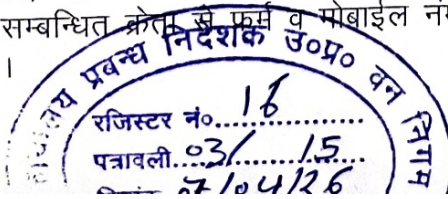 सम्बन्धित क्रेता से फर्म व मोबाईल नं
।
प्रबन्ध निदेशक उ०प्र० वन निगम
रजिस्टर नं० 16
पत्रावली 03/ 15
7/04/26